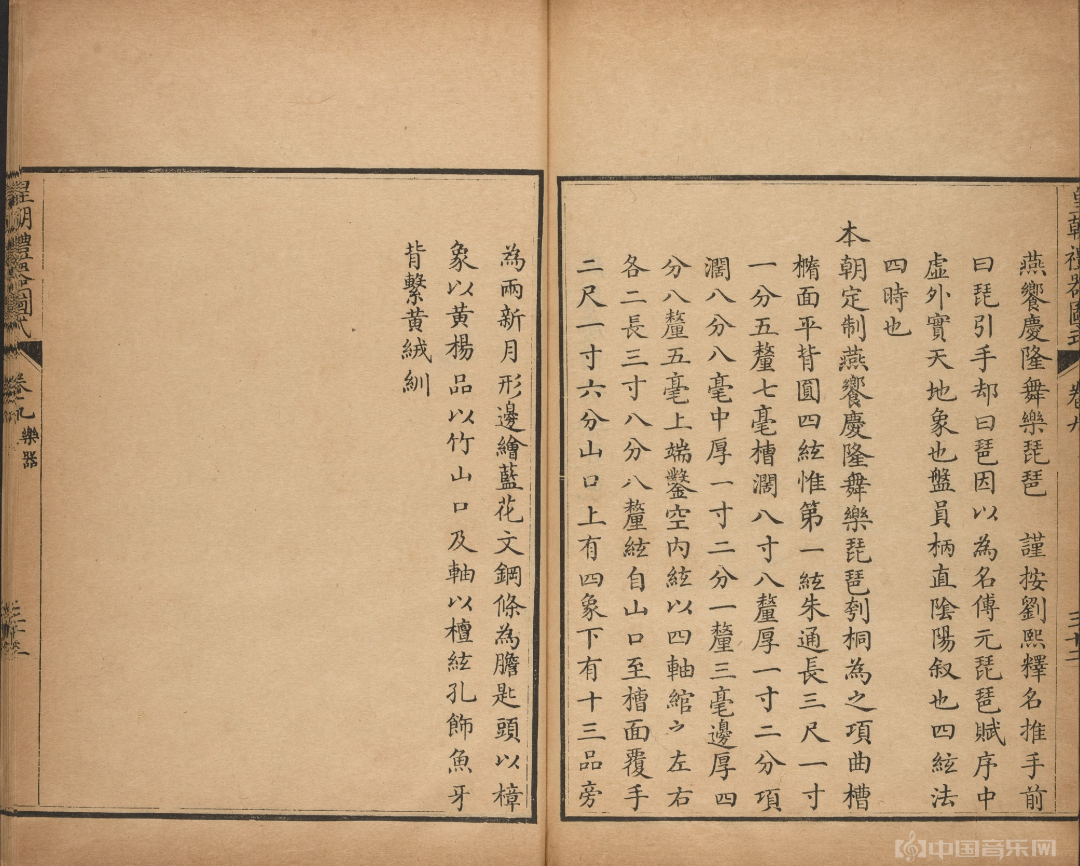 皇朝禮器圖式 卷九 三十二
燕饗慶隆舞樂琵琶　謹按劉熙釋名推手前
曰琵引手却曰琶因以為名傅元琵琶賦序中
虛外實天地象也盤員柄直陰陽叙也四絃法
四時也
本朝定制燕饗慶隆舞樂琵琶刳桐為之項曲槽
橢面平背圓四絃惟第一絃朱通長三尺一寸
一分五釐七毫槽濶八寸八釐厚一寸二分項
濶八分八毫中厚一寸二分一釐三毫邊厚四
分八釐五毫上端鑿空內絃以四軸綰之左右
各二長三寸八分八釐絃自山口至槽面覆手
二尺一寸六分山口上有四象下有十三品旁
為兩新月形邊繪藍花文鋼條為膽匙頭以樟
象以黃楊品以竹山口及軸以檀絃孔飾魚牙
背繫黃絨紃
皇朝禮器圖式
卷九 樂器
中国音乐网